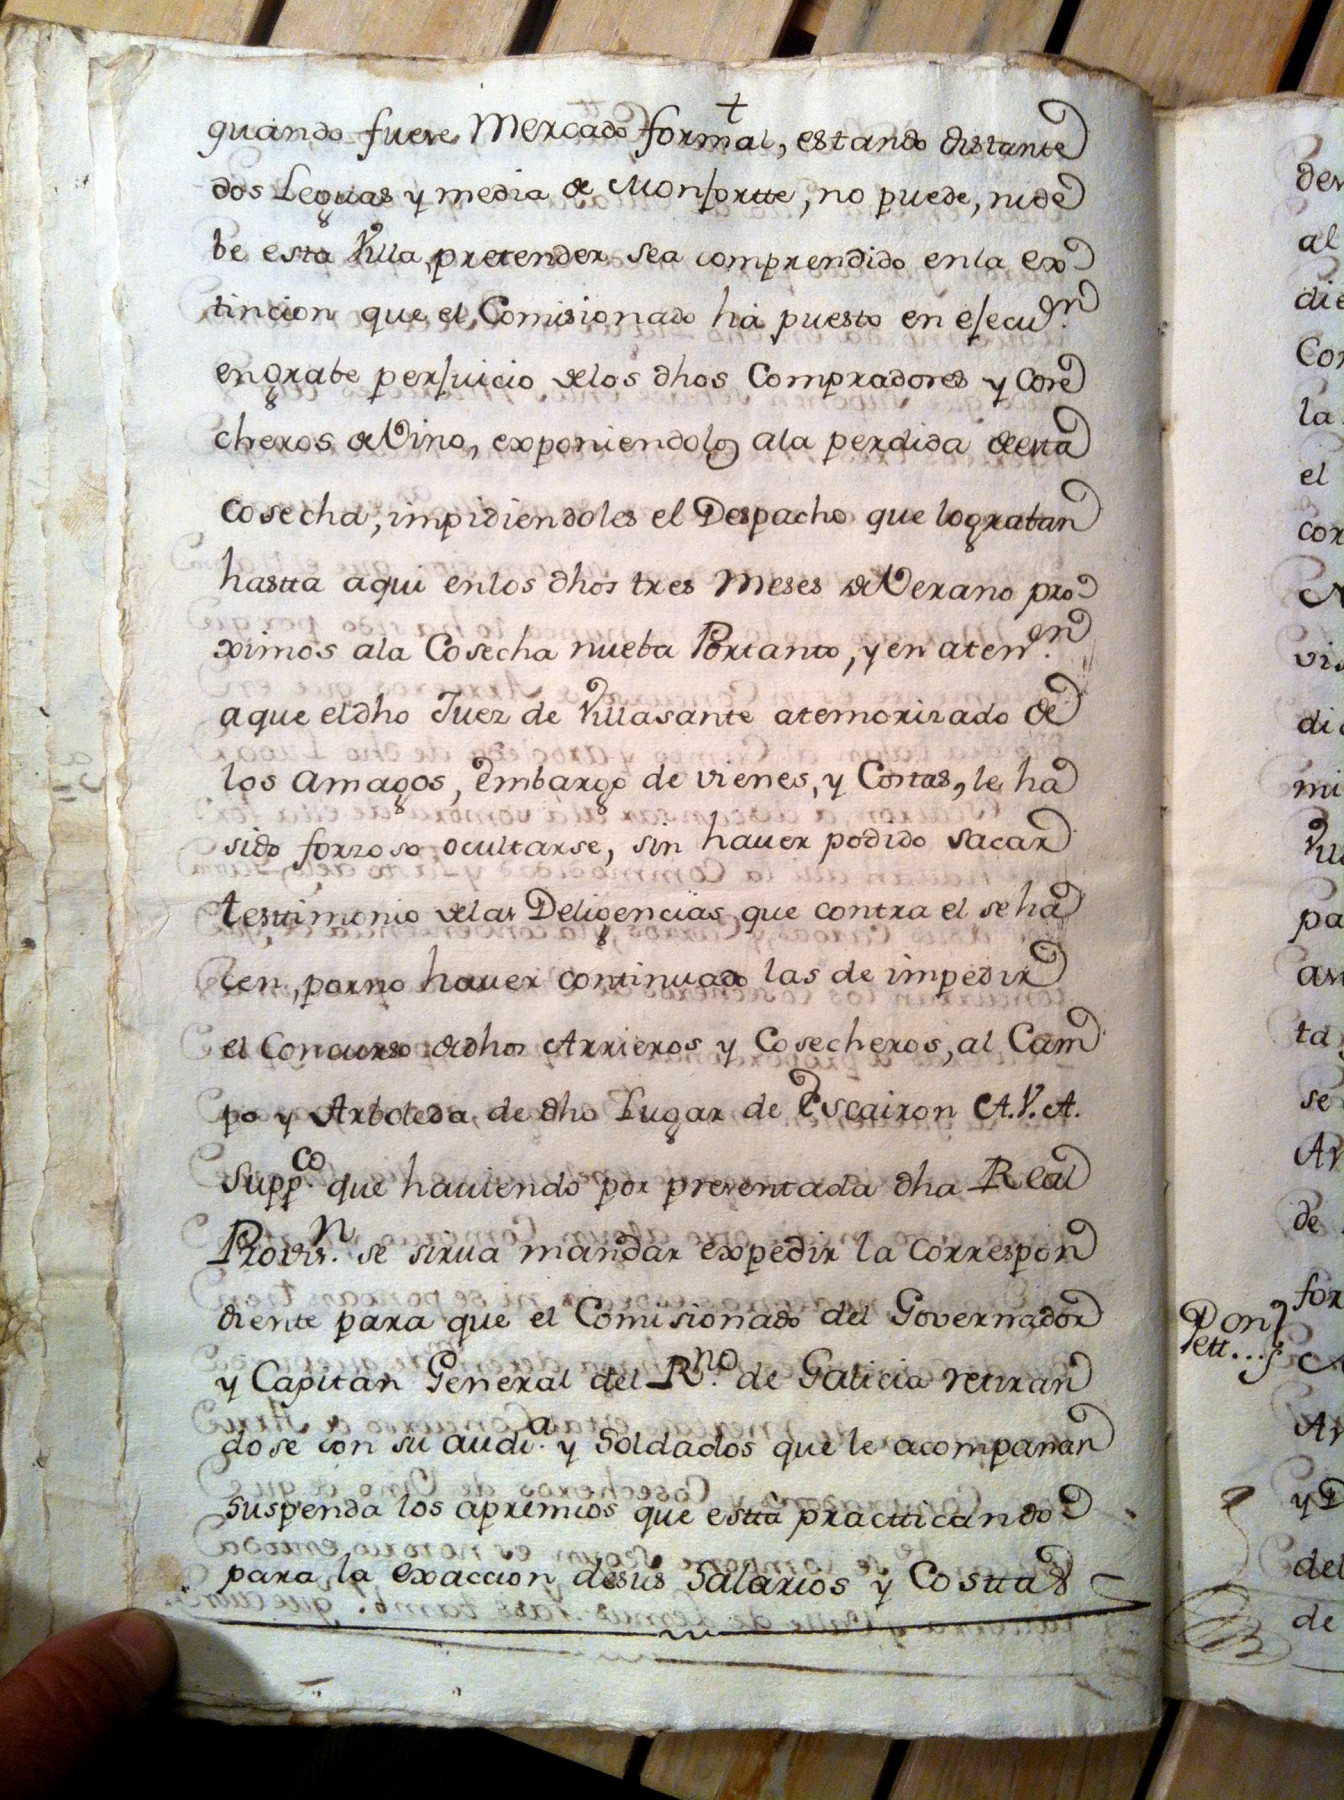 t
quando fuere Mercado formal, estando distante
dos Leguas y media de Monfortte, no puede, ni de
be esta Villa pretender sea comprendido en la ex
tincion que el Comisionado há puesto en ejecu.on
en grabe perjuicio de los dhos Compradores y Cose
cheros de Vino, exponiendolos a la perdida de esta
Cosecha, impidiendoles el Despacho que lograban
hastta aqui en los dhos tres Meses de Verano pro
ximos a la Cosecha nueba Portanto, y en aten.on
a que el dho Juez de Villasante atemorizado de
los Amagos, Embargo de vienes, y Costas, le ha
sido forzoso ocultarse, sin haver podido sacar
testtimonio de las Deligencias que contra el se ha
cen, por no haver continuado las de impedir
el Concurso de dhos Arrieros y Cosecheros, al Cam
po y Arboleda de dho Lugar de Escairon A.V.A.
Supp.co que haviendo por presentada dha Real
Provis.n se sirva mandar expedir la correspon
diente para que el Comisionado del Governador
y Capitán General del R.no de Galicia retiran
dose con su audi.a y Soldados que le acompañan
suspenda los apremios que estta practticando
para la exaccion de sus Salarios y Costtas
der
al
die
Con
la
el
cor
vis
di
mi
Vill
pa
ta
se
de
for
Ar
y D
del
de